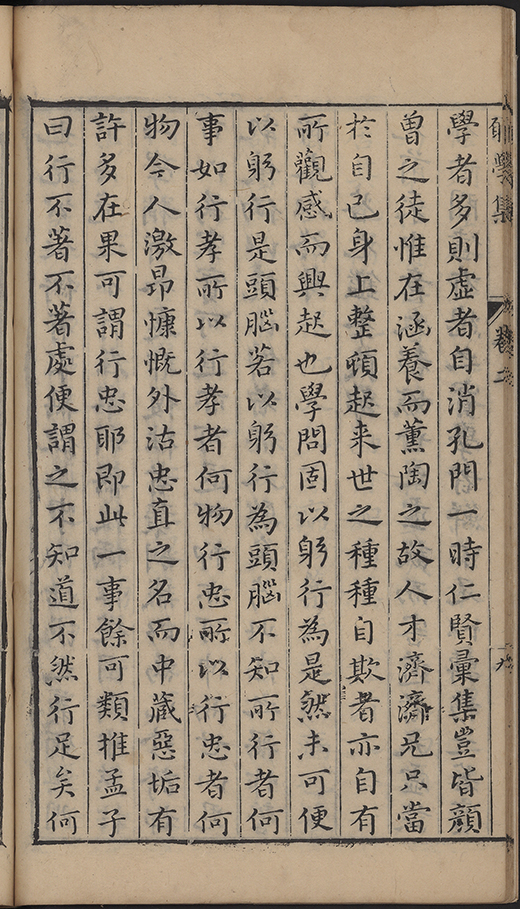 學者多則虛者自消孔門一時仁賢彙集豈皆顏
曾之徒惟在涵養而薰陶之故人才濟濟兄只當
於自己身上整頓起来世之種種自欺者亦自有
所觀感而興起也學問固以躬行為是然未可便
以躬行是頭腦若以躬行為頭腦不知所行者何
事如行孝所以行孝者何物行忠所以行忠者何
物今人激昂慷慨外沽忠直之名而中藏惡垢有
許多在果可謂行忠耶即此一事餘可類推孟子
曰行不著不著處便謂之不知道不然行足矣何